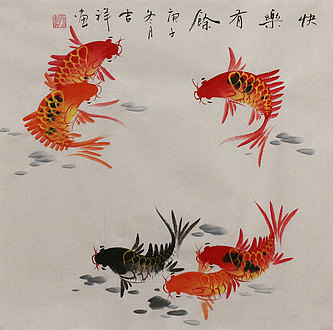 快樂有餘
庚子冬月
吉祥画